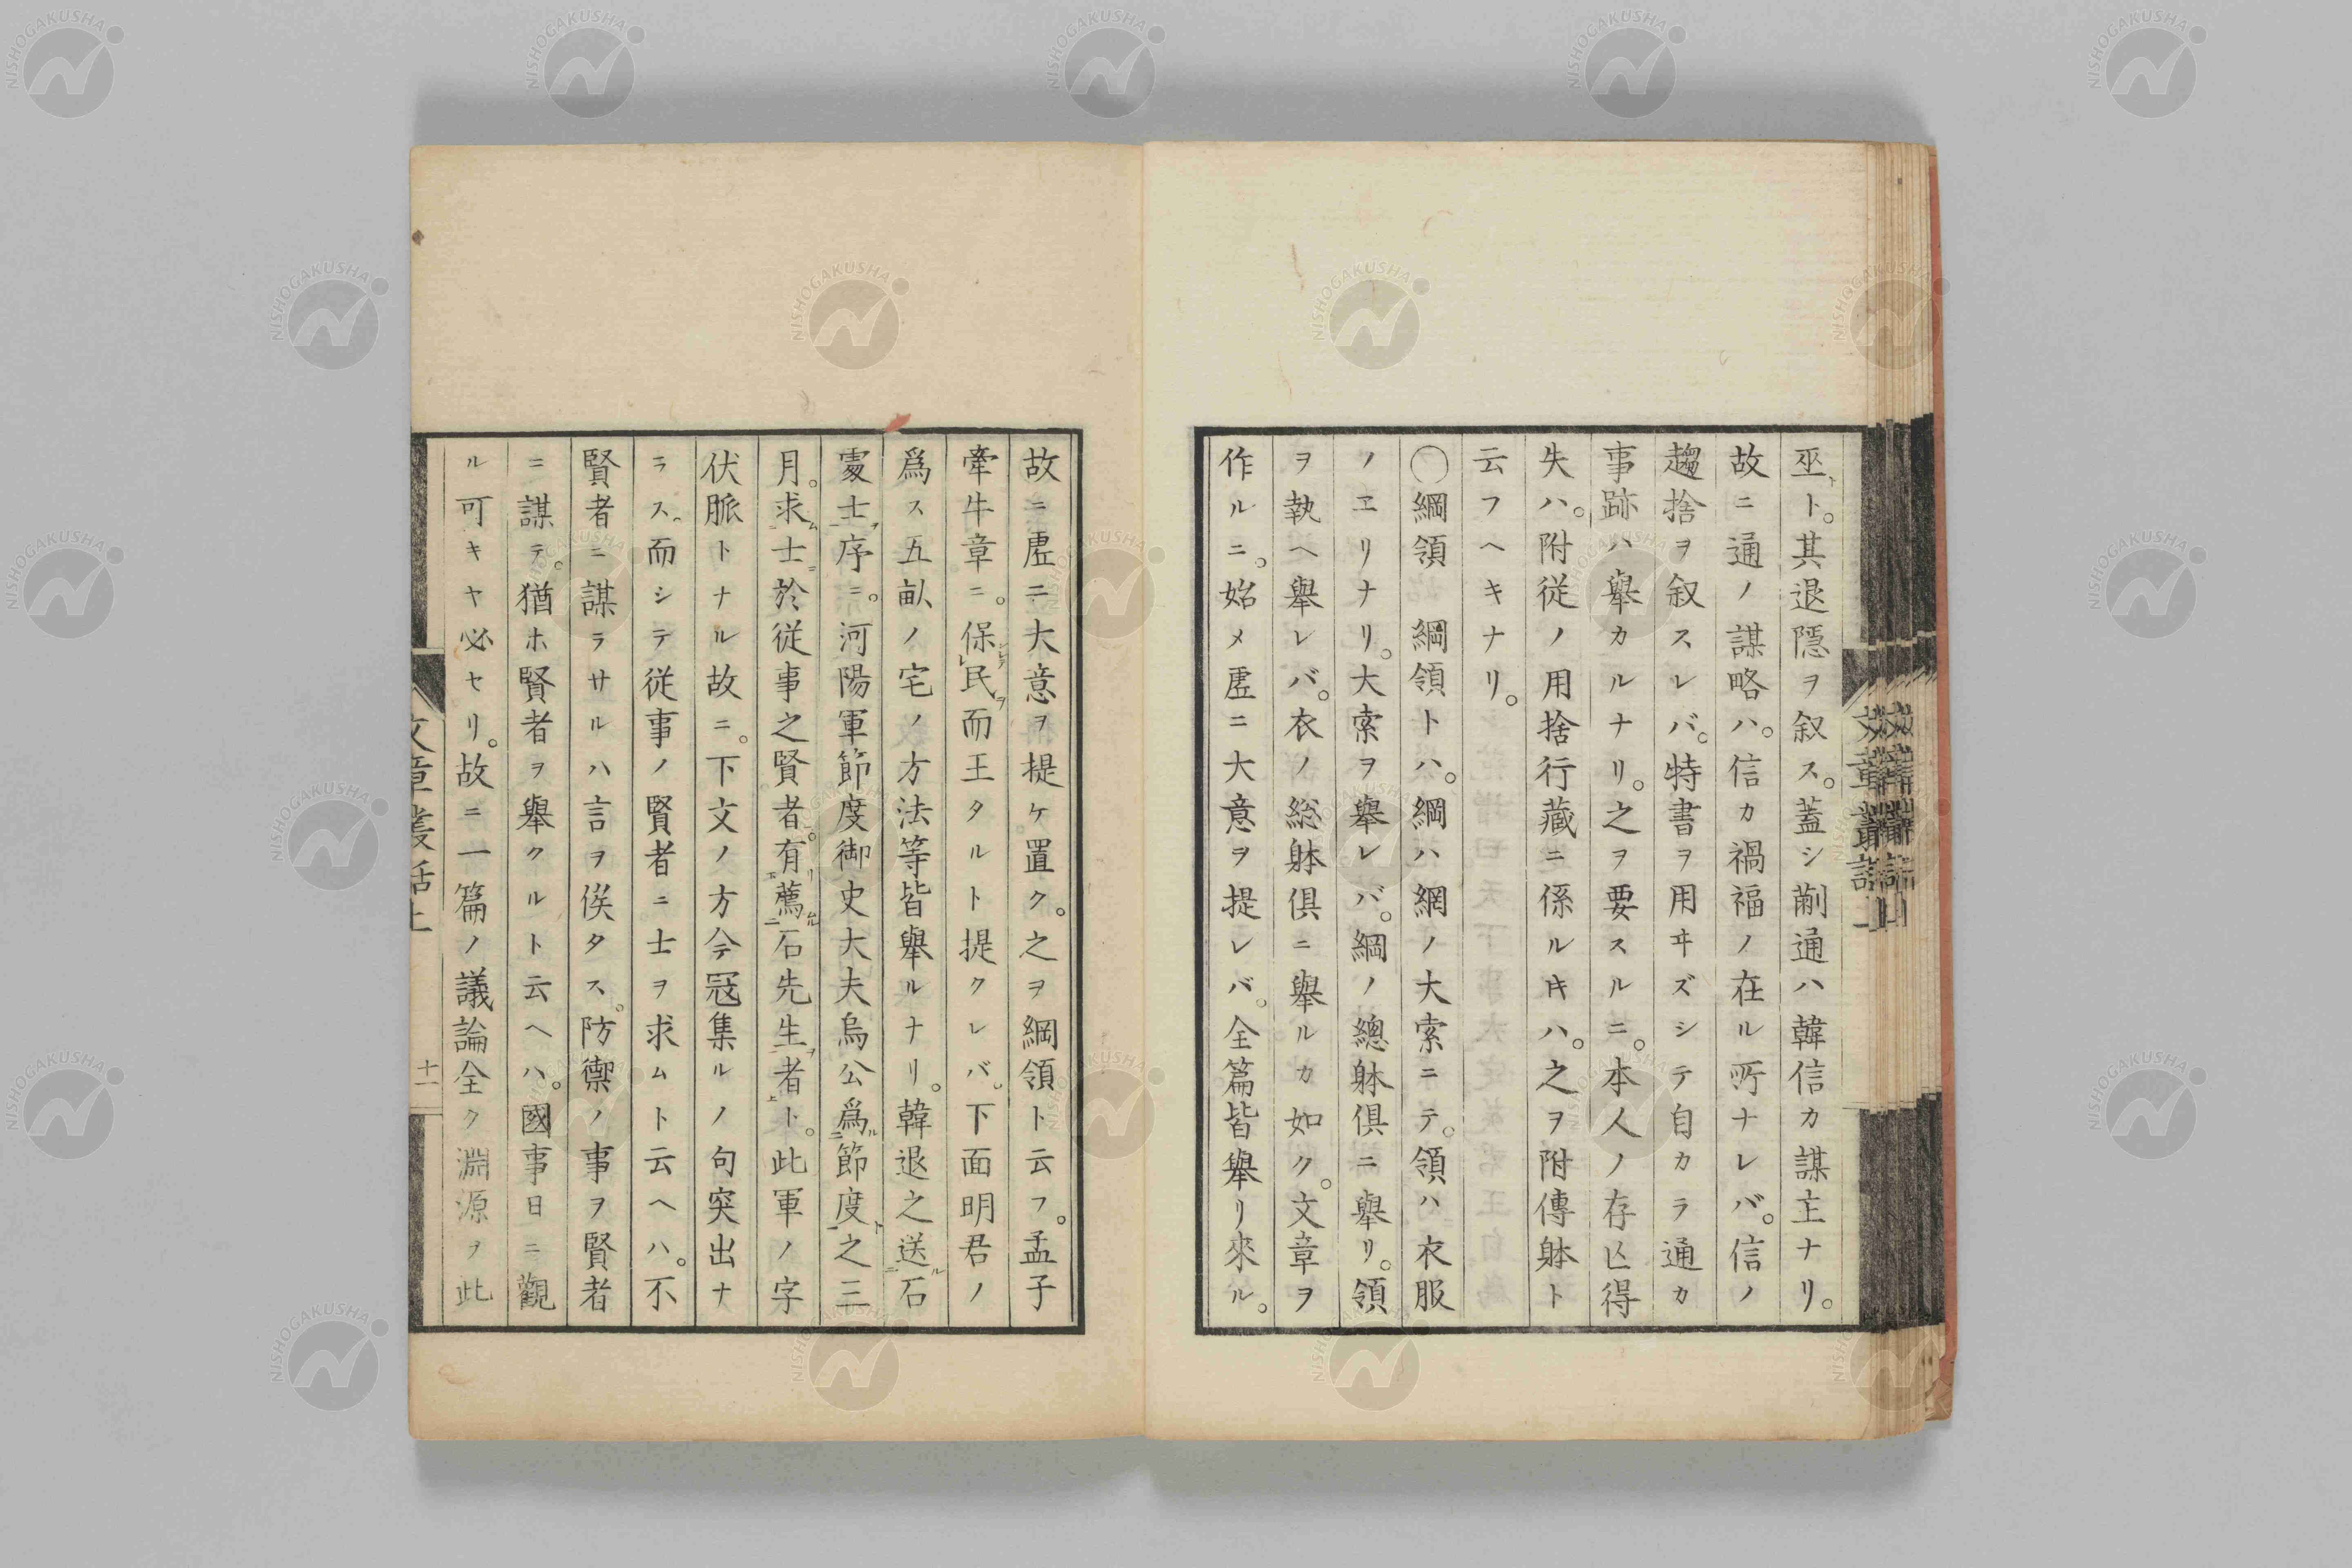 巫ト。其退隱ヲ叙ス。蓋シ蒯通ハ韓信カ謀主ナリ。
故ニ通ノ謀略ハ。信カ禍福ノ在ル所ナレバ。信ノ
趨捨ヲ叙スレバ。特書ヲ用ヰズシテ自カラ通カ
事跡ハ舉カルナリ。之ヲ要スルニ。本人ノ存亡得
失ハ。附従ノ用捨行藏ニ係ルキハ。之ヲ附傳躰ト
云フヘキナリ。
〇綱領 綱領トハ。綱ハ網ノ大索ニテ。領ハ衣服
ノヱリナリ。大索ヲ舉レバ。綱ノ總躰倶ニ舉リ。領
ヲ執ヘ舉レバ。衣ノ総躰倶ニ舉ルカ如ク。文章ヲ
作ルニ。始メ虚ニ大意ヲ提レバ。全篇皆舉リ來ル。
故ニ虚ニ大意ヲ提ケ置ク。之ヲ綱領ト云フ。孟子
牽牛章ニ。保民而王タルト提クレバ。下面明君ノ
爲ス五畝ノ宅ノ方法等皆舉ルナリ。韓退之送石
處士序ニ。河陽軍節度御史大夫烏公爲節度之三
月。求士於従事之賢者。有薦石先生者ト。此軍ノ字
伏脈トナル故ニ。下文ノ方今冦集ルノ句突出ナ
ラス。而シテ従事ノ賢者ニ士ヲ求ムト云ヘハ。不
賢者ニ謀ラサルハ言ヲ俟タス。防禦ノ事ヲ賢者
ニ謀テ。猶ホ賢者ヲ舉クルト云ヘハ。國事日ニ觀
ル可キヤ必セリ。故ニ一篇ノ議論全ク淵源ヲ此
文章叢話上
十一
NISHOGAKUSHA